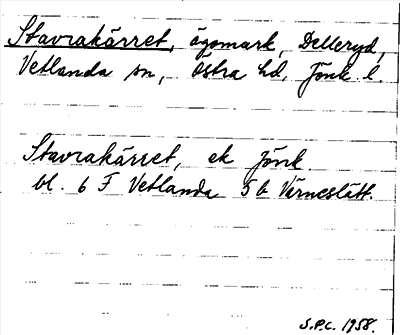 Stavrakärret, ägomark, Delleryd,
Vetlanda sn, Östra hd, Jönk. l.
Stavrakärret, ek Jönk.
bl. 6 F Vetlanda 5 b Värneslätt.
S.P.C. 1958.